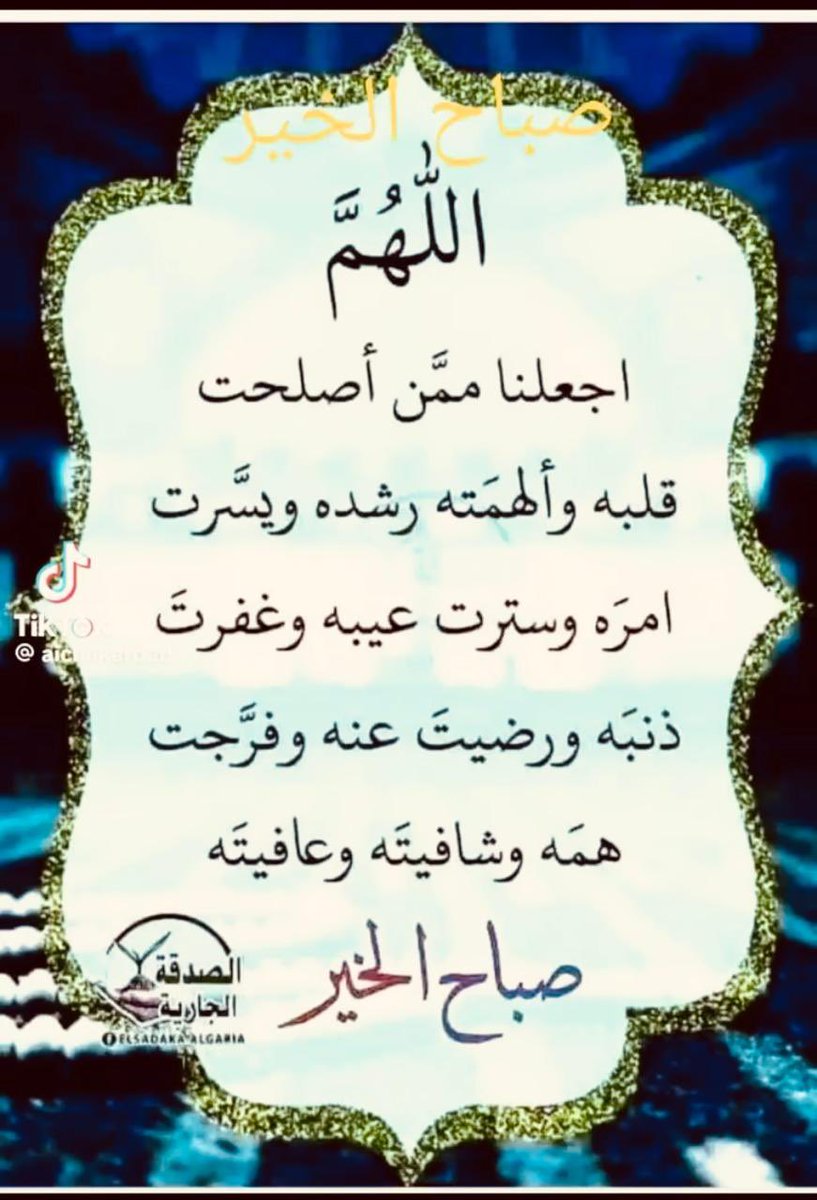 صباح الخير
اللّٰهُمَّ
اجعلنا ممَّن أصلحت
قلبه وألهمَته رشده ويسَّرت
امرَه وسترت عيبه وغفرتَ
ذنبَه ورضيتَ عنه وفرَّجت
همَه وشافيتَه وعافيتَه
صباح الخير
الصدقة
الجارية
ELSADAKA ALGARIA